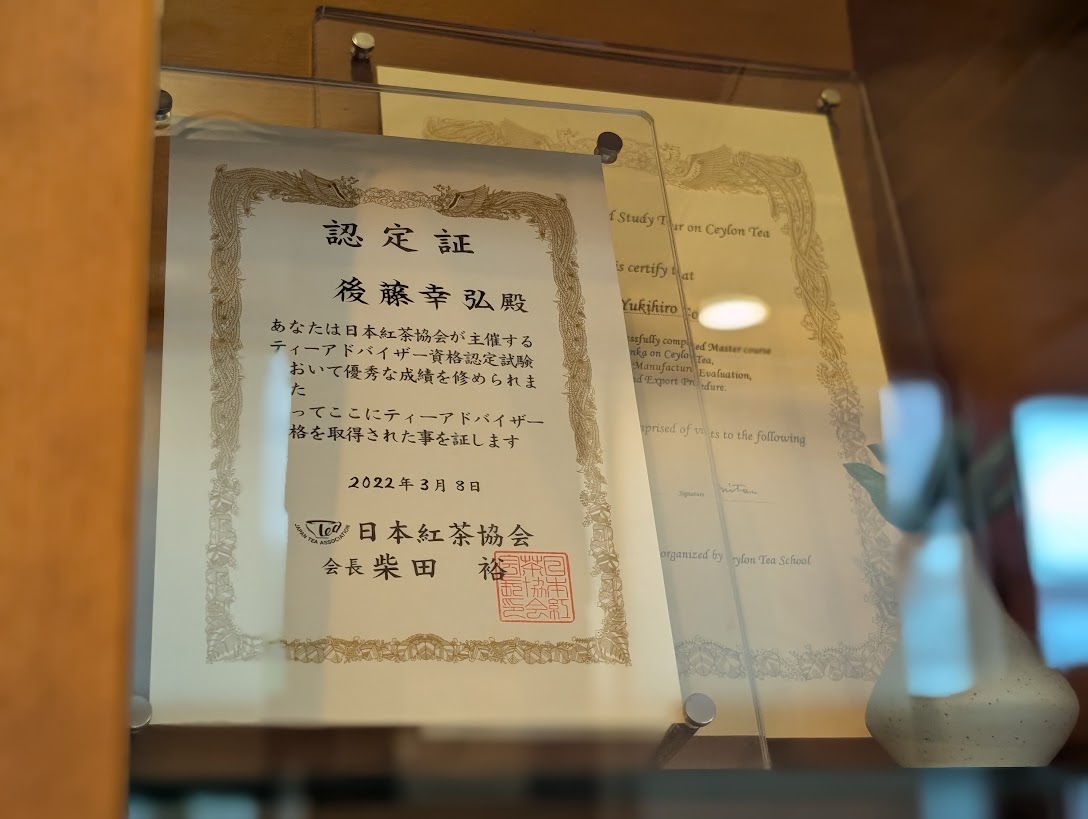 認定証
後藤幸弘殿
あなたは日本紅茶協会が主催する
ティーアドバイザー資格認定試験
おいて優秀な成績を修められま
た
ってここにティーアドバイザー
格を取得された事を証します
2022年3月8日
Tea
JAPAN TEA ASSOCIATION
日本紅茶協会
会長 柴田 裕
Study Tour on Ceylon Tea
is certify that
Yukihiro
Master course
on Ceylo Tea,
Manufacturi Evaluation,
d Export
prised of to the following
Signature
organized by Ceylon Tea School